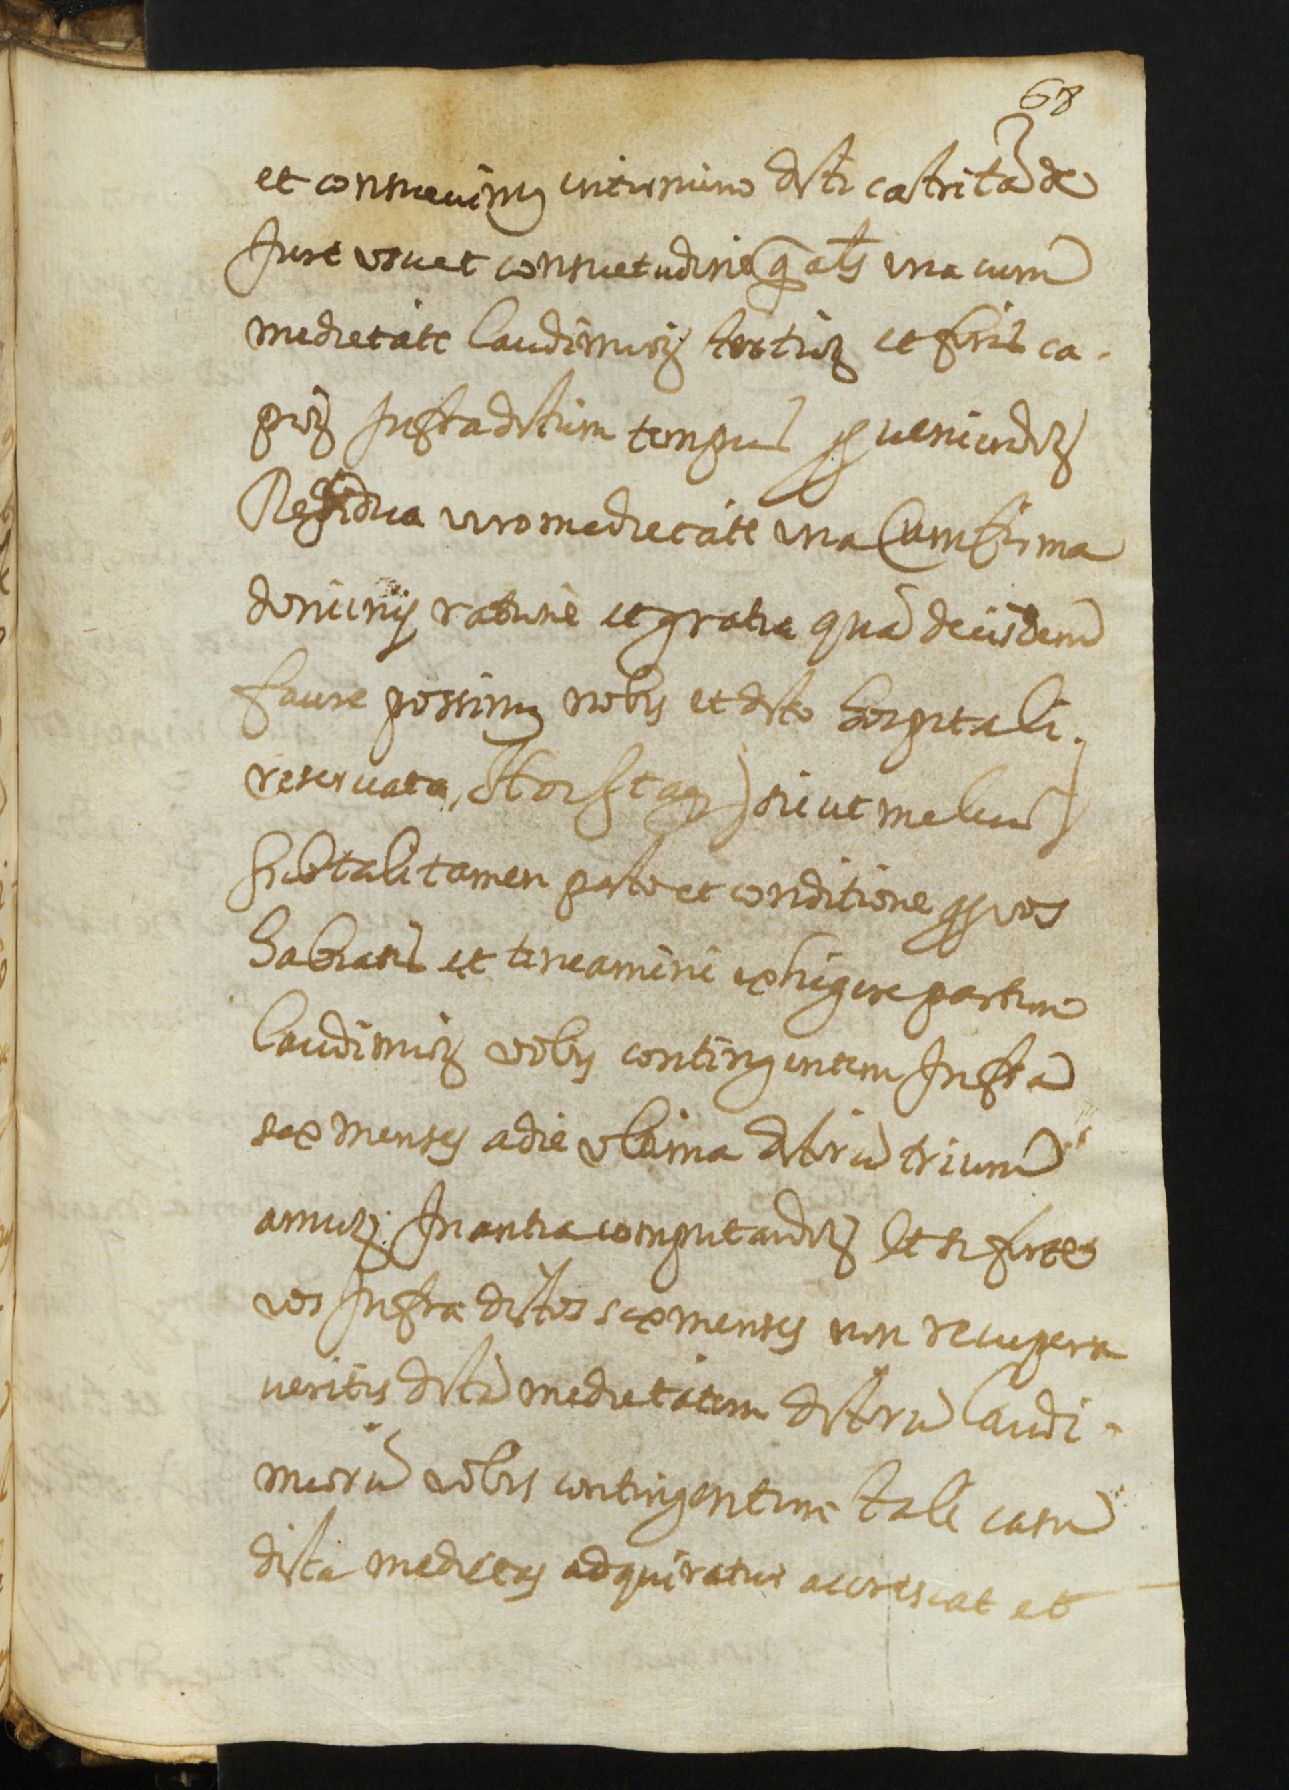 68
et consuevimus in termino dicti castri tam de
Jure usu et consuetudine q̃ als una cum
medietate laudimiorz tertiorz et foris ca-
piorz Infra dictum tempus pervenien dorz
Residua vero medietate una cum firma
dominij ratione et gratia quã de eisdem
facere possimus nobis et dicto hospitali
reservata, sicut melius)
sub tali tamen pacto et conditione qq vos
habeatis et teneamini exhigere partem
laudimiorz vobis contingentem Infra
sex menses a die ultima dictorũ trium
annorz. In antea computandorz Et si forte
vos Infra dictos sex menses non recupera
veritis dictã medietatem dictorũ laudi-
miorũ vobis contingentem tali casu
dicta medietas adquiratur accrescat et